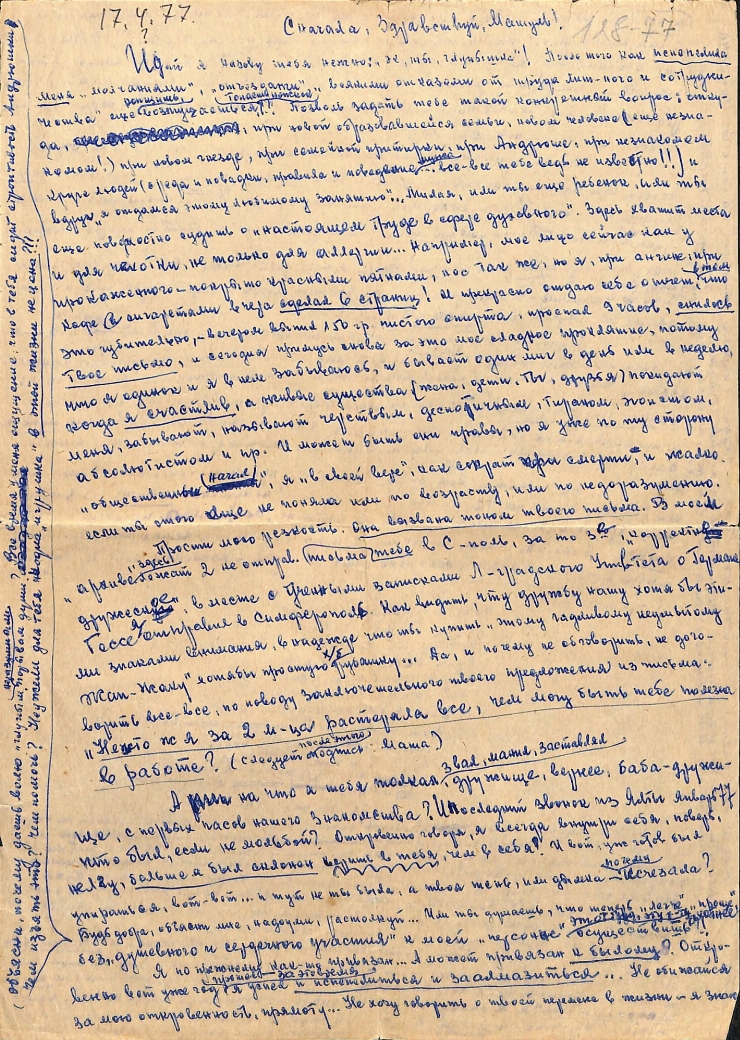 17.4.77.
Сначала, Здравствуй, Машуль!
128-77
дай я назову тебя нежно: "эх, ты, глупышка"! После того как испепелила
меня "молчаниями", "отъездами", всякими отказами от труда лит-ного и сотрудни-
чества" еще возмущаешься!! Позволь задать тебе такой конкретный вопрос: отку-
да, при новой образовавшейся семье, новом человеке (еще незна-
комом!) при новом гнезде, при семейной притирке, при Андрюше, при незнакомом
круге людей (среда и повадки, правила и поведение все-все тебе ведь не известно!!) и
вдруг "я отдамся этому любимому занятию"... Милая, или ты еще ребенок, или ты
еще поверхостно судишь о "настоящем труде в сфере духовного". Здесь хватит места
и для чахотки, не только для аллергии... Например, мое лицо сейчас как у
прокаженного - покрыто красными пятнами, нос так же, но я, при ангине, при
кофе с сигаретами вчера сделал 6 страниц! И прекрасно отдаю себе отчет, в том что
это губительно, - вечером выпил 150 гр. чистого спирта, проспал 9 часов, снилось
твое письмо, и сегодня примусь снова за это мое сладкое проклятие, потому
что я одинок и я в нем забываюсь, и бывает один миг в день или в неделю
когда я счастлив, а живые существа (жена, дети. Ты, друзья) покидают
меня, забывают, называют черствым, деспотичным, тираном, эгоистом,
абсолютистом и пр. И может быть они правы, но я уже по ту сторону
"общественных начал", я "в своей вере", как Сократ при смерти, и жалко
если ты этого еще не поняла или по возрасту, или по недоразумению.
Прости мою резкость. Она вызвана тоном твоего письма. В моем
"архиве" здесь лежат 2 не отправ. письма тебе в С-поль, за то 3е, корректно
дружеское, в месте с Учеными записками Л-градского Унив-тета о Германе
Гессе отправил в Симферополь. Как видишь, чту дружбу нашу хотя бы эти-
ми знаками внимания, в надежде что ты купишь, этому гадливому неумытому
Жан-Жаку" хотябы простую х/б рубашку... Да, и почему не обговорить, не дого-
ворить все-все, по поводу заключительного твоего предложения из письма:
"Неужто ж я за 2 м-ца растеряла все, чем могу быть тебе полезна
в работе? (следует после этого подпись: Маша)
А на что я тебя толкал, звал, манил, заставлял дружище, вернее, баба-дружи-
ще, с первых часов нашего знакомства? И последний звонок из Ялты январь 77
что был, если не мольбой? Откровенно говоря, я всегда внутри себя, поверь,
не лгу, больше я был склонен верить в тебя, чем в себя! И вот, уже готов был
упираться, вот-вот... и тут не ты была, а твоя тень, или дымка - почему исчезала?
Будь добра, объясни мне, надоуми, растолкуй... Или ты думаешь, что теперь "легче", "проще"
без "душевного и сердечного участия" к моей "персоне" это осуществить?
Я по прежнему как-то привязан... А может привязан к былому? Откро-
венно вот уже год я успел прошел за это время и испепелиться и заалмазиться... Не обижайся
за мою откровенность, прямоту... Не хочу говорить о твоей перемене в жизни - я знаю
(объясни, почему даешь волю "глупым" порывам души? Все время у меня ощущение: что в тебе сидит строптивость Андрюшки,
чем изъять это? Чем помочь? Неужели для тебя "игрушка" в этой жизни не цена?!!